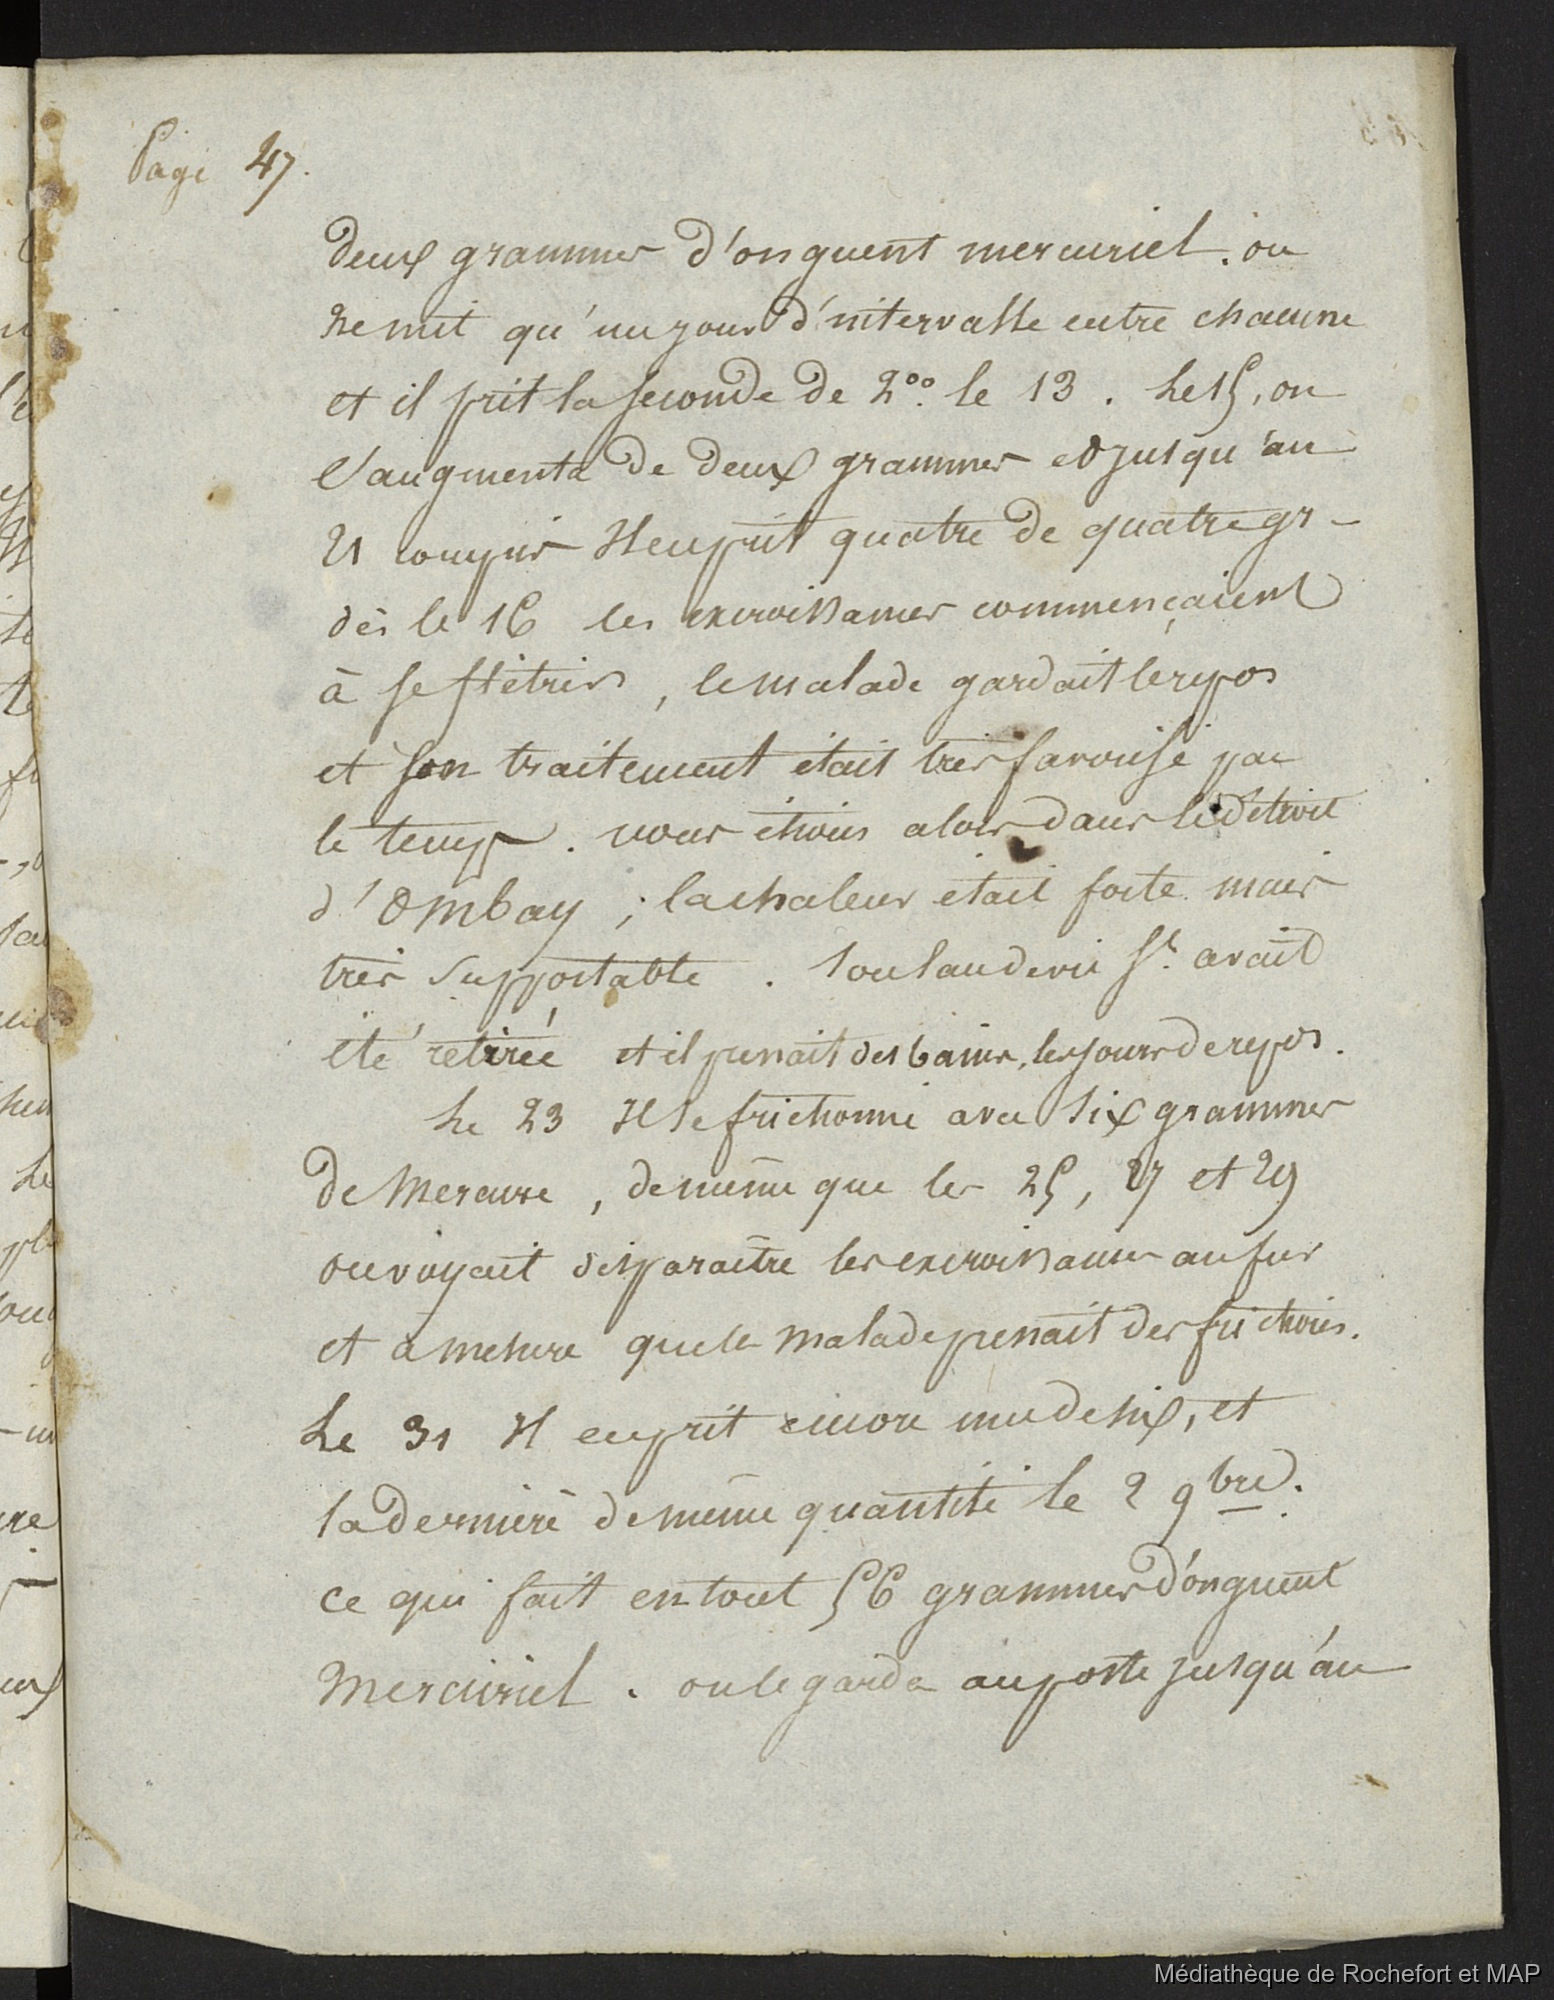 Page 47.
deux grammes d'onguent mercuriel. on
ne mit qu'un jour d'intervalle entre chacune
et il prit la seconde de 2°° le 13. Le 15, on
l'augmenta de deux grammes et jusqu'au
21 compris Il en prit quatre de quatre gr -
dès le 16 les excroissances commençaient
à se flétrir, le malade gardait le repos
et son traitement était très favorisé par
le temps. nous étions alors dans le détroit
d'Ombay ; la chaleur était forte mais
très supportable. Son
été retirée et il prenait des bains, les jours de repos.
Le 23 Il se frictionne avec six grammes
de Mercure, de même que les 25, 27 et 29
on voyait disparaître les excroissances au fur
et a mesure que le malade prenait des frictions.
Le 31 Il en prit encore une de six, et
la dernière de même quantité le 2 9bre.
ce qui fait en tout 56 grammes d'onguent
Mercuriel. on le garda au poste jusqu'au
Médiathèque de Rochefort et MAP